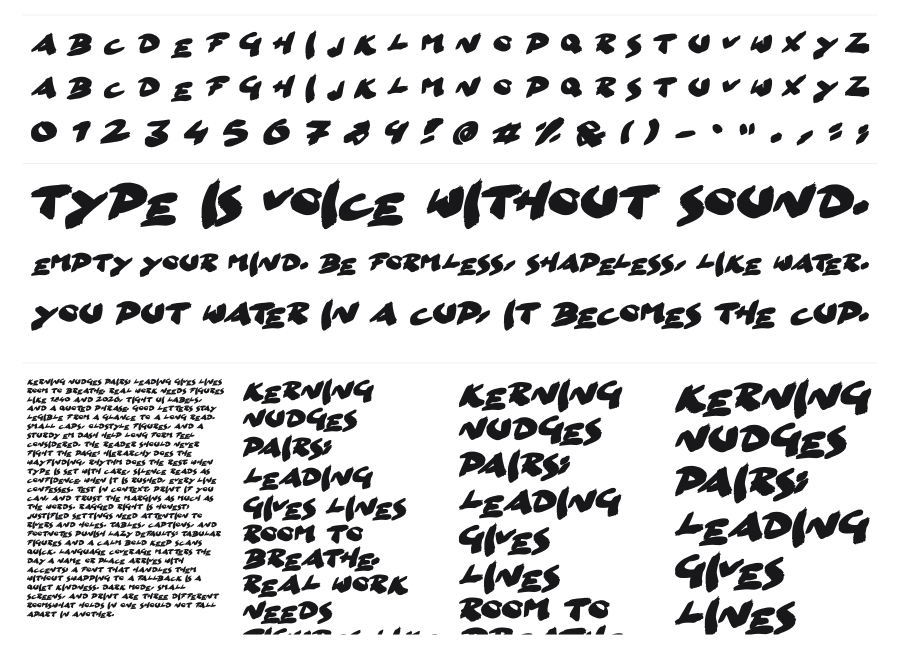 A B C D E F G H I J K L M N O P Q R S T U V W X Y Z
A B C D E F G H I J K L M N O P Q R S T U V W X Y Z
0 1 2 3 4 5 6 7 8 9 ? @ # % & ( ) – • " . , : ;
TYPE IS VOICE WITHOUT SOUND.
EMPTY YOUR MIND. BE FORMLESS, SHAPELESS, LIKE WATER.
YOU PUT WATER IN A CUP, IT BECOMES THE CUP.
KERNING NUDGES PAIRS; LEADING GIVES LINES
ROOM TO BREATHE. REAL WORK NEEDS FIGURES
LIKE 1840 AND 2026, TIGHT UI LABELS,
AND A QUOTED PHRASE. GOOD LETTERS STAY
LEGIBLE FROM A GLANCE TO A LONG READ.
SMALL CAPS, OLDSTYLE FIGURES, AND A
STURDY EM DASH HELP LONG FORM FEEL
CONSIDERED. THE READER SHOULD NEVER
FIGHT THE PAGE: HIERARCHY DOES THE
WAYFINDING, RHYTHM DOES THE REST. WHEN
TYPE IS SET WITH CARE, SILENCE READS AS
CONFIDENCE; WHEN IT IS RUSHED, EVERY LINE
CONFESSES. TEST IN CONTEXT, PRINT IF YOU
CAN, AND TRUST THE MARGINS AS MUCH AS
THE WORDS. RAGGED RIGHT IS HONEST;
JUSTIFIED SETTINGS NEED ATTENTION TO
RIVERS AND HOLES. TABLES, CAPTIONS, AND
FOOTNOTES PUNISH LAZY DEFAULTS: TABULAR
FIGURES AND A CALM BOLD KEEP SCANS
QUICK. LANGUAGE COVERAGE MATTERS THE
DAY A NAME OR PLACE ARRIVES WITH
ACCENTS; A FONT THAT HANDLES THEM
WITHOUT SNAPPING TO A FALLBACK IS A
QUIET KINDNESS. DARK MODE, SMALL
SCREENS, AND PRINT ARE THREE DIFFERENT
ROOMS; WHAT HOLDS IN ONE SHOULD NOT FALL
APART IN ANOTHER.
KERNING
NUDGES
PAIRS;
LEADING
GIVES LINES
ROOM TO
BREATHE.
REAL WORK
NEEDS
FIGURES LIKE
KERNING
NUDGES
PAIRS;
LEADING
GIVES
LINES
ROOM TO
BREATHE.
KERNING
NUDGES
PAIRS;
LEADING
GIVES
LINES